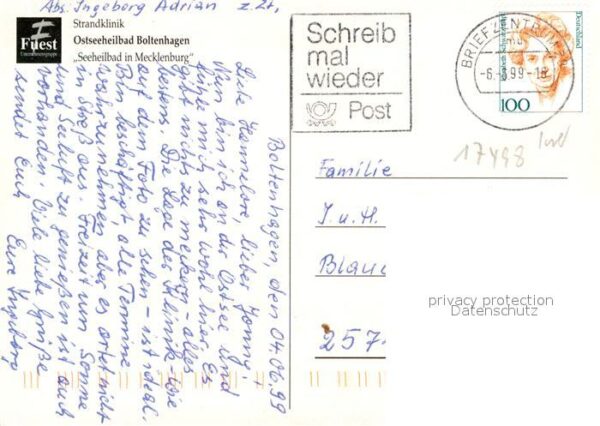 Abs. Ingeborg Adrian z.Zt.
Strandklinik
Ostseeheilbad Boltenhagen
„Seeheilbad in Mecklenburg"
Fuest
Unternehmensgruppe
Schreib
mal
wieder
Post
BRIEFZENTRUM
-6.-6.99-18
Deutschland
100
17498
Boltenhagen, den 04.06.99
Liebe Hannelore, lieber Jonny -
Nun bin ich an der Ostsee und
fühle mich sehr wohl hier. Es
gibt nichts zu meckern - alles
bestens. Die Lage der Klinik (die
auf dem Foto zu sehen - ist ideal.
Bin beschäftigt, alle Termine
wahrzunehmen aber es artet nicht
in Streß aus. Freizeit um Sonne
und Seeluft zu genießen ist auch
vorhanden. Viele liebe Grüße
sendet Euch
Eure Ingeborg
Familie
J. u. H.
Blaue
257
privacy protection
Datenschutz